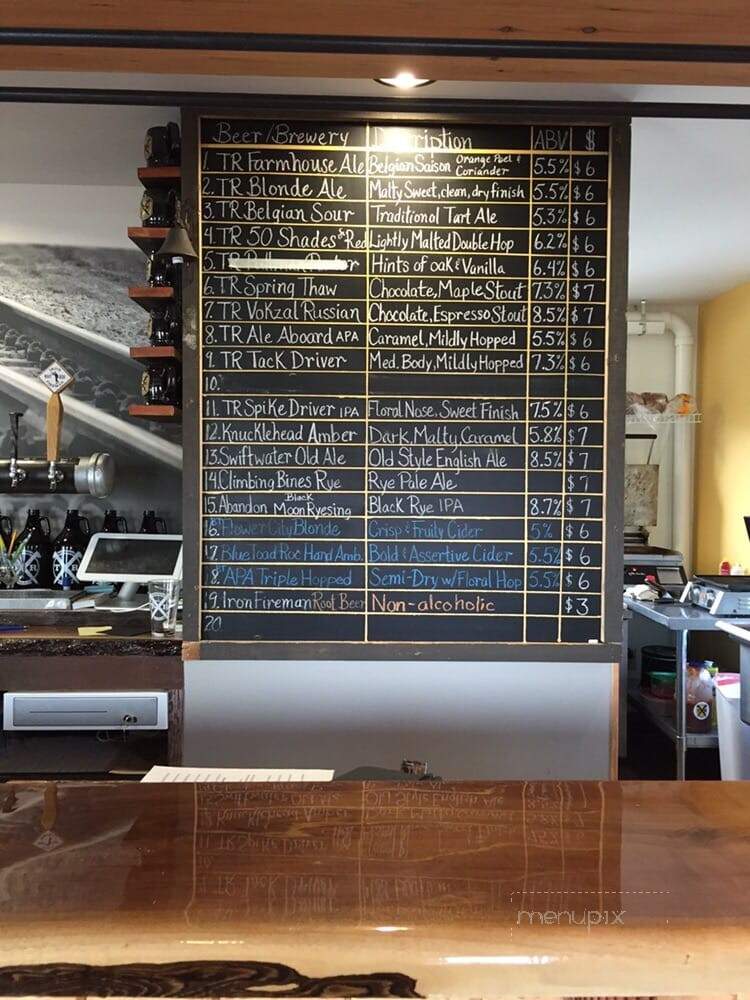 Beer/Brewery Description ABV $
1. TR Farmhouse Ale Belgian Saison Orange Peel & Coriander 5.5% $6
2. TR Blonde Ale Malty Sweet, clean, dry finish 5.5% $6
3. TR Belgian Sour Traditional Tart Ale 5.3% $6
4. TR 50 Shades of Red Lightly Malted Double Hop 6.2% $6
5. Hints of oak & Vanilla 6.4% $6
6. TR Spring Thaw Chocolate, Maple Stout 7.3% $7
7. TR Vokzal Russian Chocolate, Espresso Stout 8.5% $7
8. TR Ale Aboard APA Caramel, Mildly Hopped 5.5% $6
9. TR Tack Driver Med. Body, Mildly Hopped 7.3% $6
10.
11. TR Spike Driver IPA Floral Nose, Sweet Finish 7.5% $6
12. Knucklehead Amber Dark, Malty, Caramel 5.8% $7
13. Swiftwater Old Ale Old Style English Ale 8.5% $7
14. Climbing Bines Rye Rye Pale Ale $7
15. Abandon Black Moon Ryesing Black Rye IPA 8.7% $7
16. Flower City Blonde Crisp & Fruity Cider 5% $6
17. Blue Toad Roc Hard Amb. Bold & Assertive Cider 5.5% $6
18. APA Triple Hopped Semi-Dry w/Floral Hop 5.5% $6
19. Iron Fireman Root Beer Non-alcoholic $3
20.
menupix